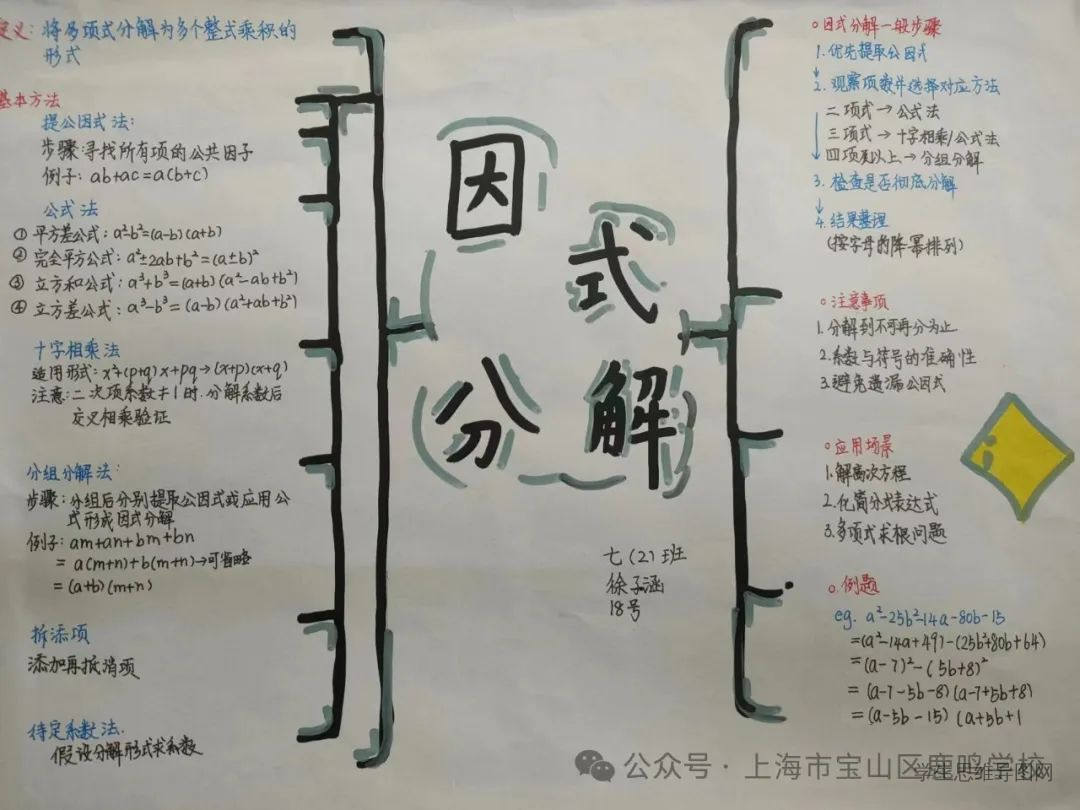 定义：将多项式分解为多个整式乘积的
形式
基本方法
提公因式法：
步骤：寻找所有项的公共因子
例子：ab+ac=a(b+c)
公式法
① 平方差公式：a²-b²=(a-b)(a+b)
② 完全平方公式：a²±2ab+b²=(a±b)²
③ 立方和公式：a³+b³=(a+b)(a²-ab+b²)
④ 立方差公式：a³-b³=(a-b)(a²+ab+b²)
十字相乘法
适用形式：x²+(p+q)x+pq→(x+p)(x+q)
注意：二次项系数≠1时，分解系数后
交叉相乘验证
分组分解法：
步骤：分组后分别提取公因式或应用公
式形成因式分解
例子：am+an+bm+bn
= a(m+n)+b(m+n)→可省略
=(a+b)(m+n)
拆添项
添加再抵消项
待定系数法.
假设分解形式求系数
因
式
分
解
七(2)班
徐子涵
18号
因式分解一般步骤
1.优先提取公因式
2.观察项数并选择对应方法
二项式→公式法
三项式→十字相乘/公式法
四项及以上→分组分解
3.检查是否彻底分解
4.结果整理
(按字母的降幂排列)
注意事项
1.分解到不可再分为止
2.系数与符号的准确性
3.避免遗漏公因式
应用场景
1.解高次方程
2.化简分式表达式
3.多项式求根问题
例题
eg. a²-25b²-14a-80b-15
=(a²-14a+49)-(25b²+80b+64)
=(a-7)²-(5b+8)²
=(a-7-5b-8)(a-7+5b+8)
=(a-5b-15)(a+5b+1
公众号·上海市宝山区鹿鸣学校
学生思维导图网